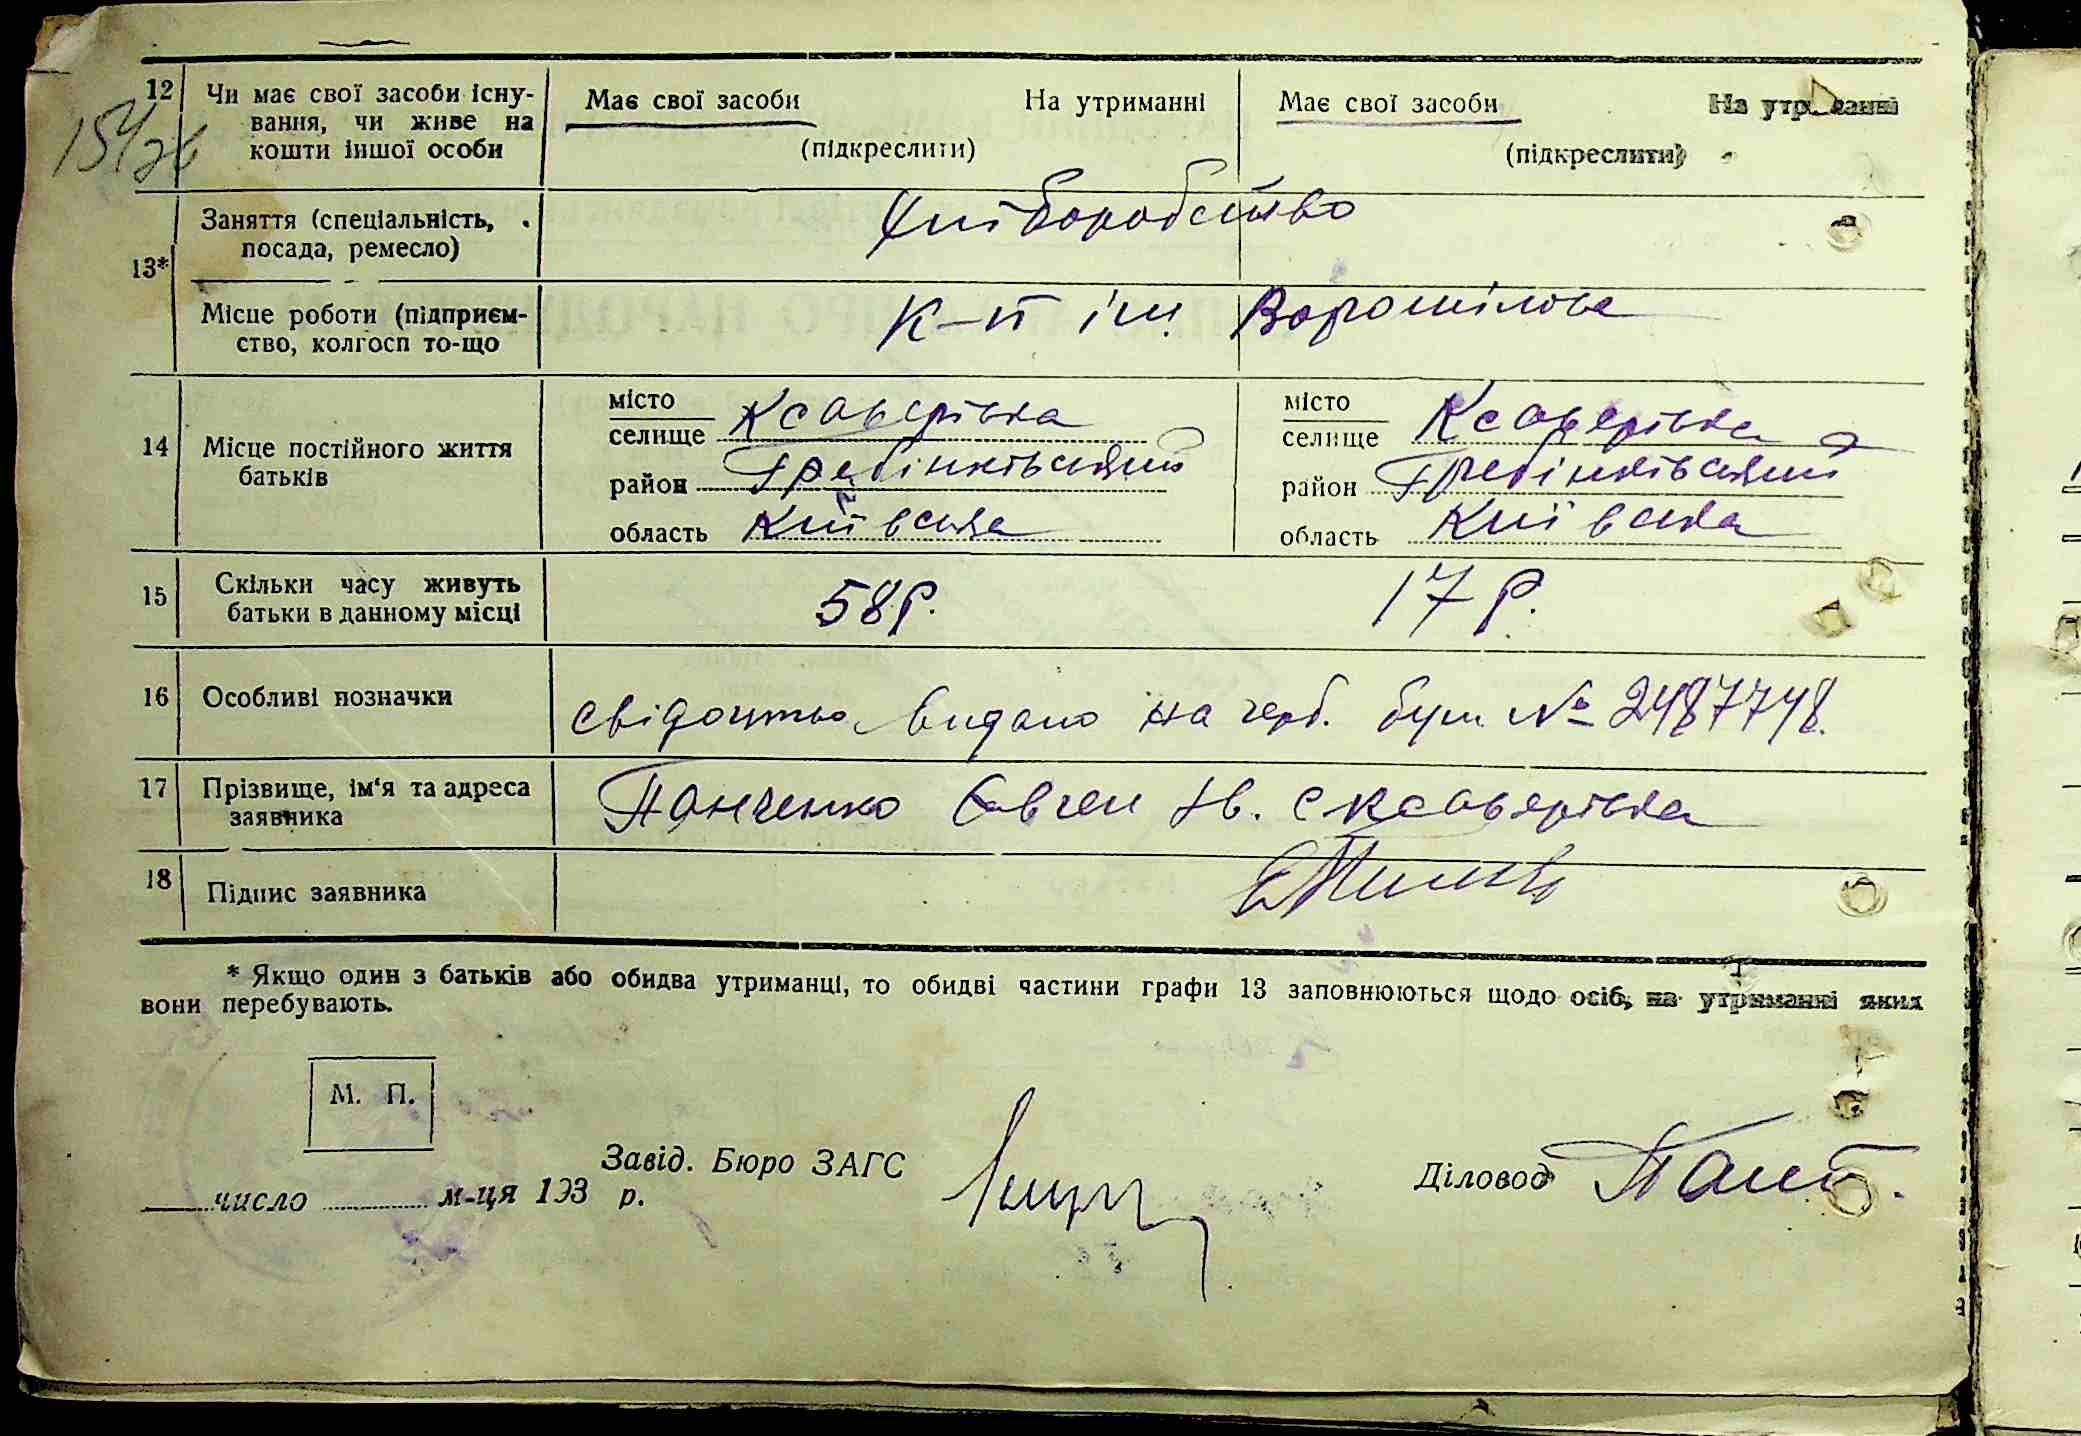 12 Чи має свої засоби існу- Має свої засоби На утриманні Має свої засоби На утриманні
вання, чи живе на
кошти іншої особи (підкреслити) (підкреслити)
Заняття (спеціальність, Хліборобство
посада, ремесло)
13*
Місце роботи (підприєм- К-п ім Ворошілова
ство, колгосп то-що
місто Ксаверівка місто Ксаверівка
селище селище
14 Місце постійного життя
батьків
район Гребінківський район Гребінківський
область Київська область Київська
15 Скільки часу живуть 58 р. 17 р.
батьки в данному місці
16 Особливі позначки свідоцтво видано на герб. бум № 2487748.
17 Прізвище, ім'я та адреса Панченко Євген Ів. с Ксаверівка
заявника
18 Підпис заявника
* Якщо один з батьків або обидва утриманці, то обидві частини графи 13 заповнюються щодо осіб, на утриманні яких
вони перебувають.
М. П.
Завід. Бюро ЗАГС Діловод
число м-ця 193 р.